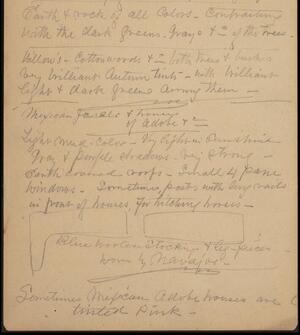 Earth & rock of all Colors - Contrasting
with the dark greens - grays & of the trees -
Willows - Cottonwoods & both trees & bushes
Very brilliant Autumn tints - with brilliant
light & dark greens Among them -
Mexican & houses
of Adobe &
Light mud - Color - Very light in Sunshine
Gray & purple shadows - very strong -
Earth covered roofs - Small 4 pane
windows - Sometimes posts with
in front of houses for hitching horses -
Blue woolen Stockings &
worn by Navajos -
Sometimes Mexican Adobe houses are
tinted Pink -